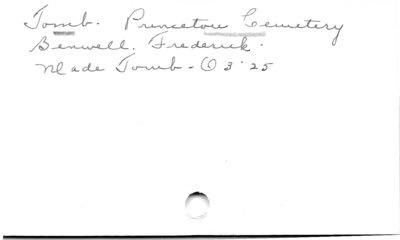 Tomb. Princeton Cemetery
Benwell, Frederick.
Made Tomb - ⑥ 3.25